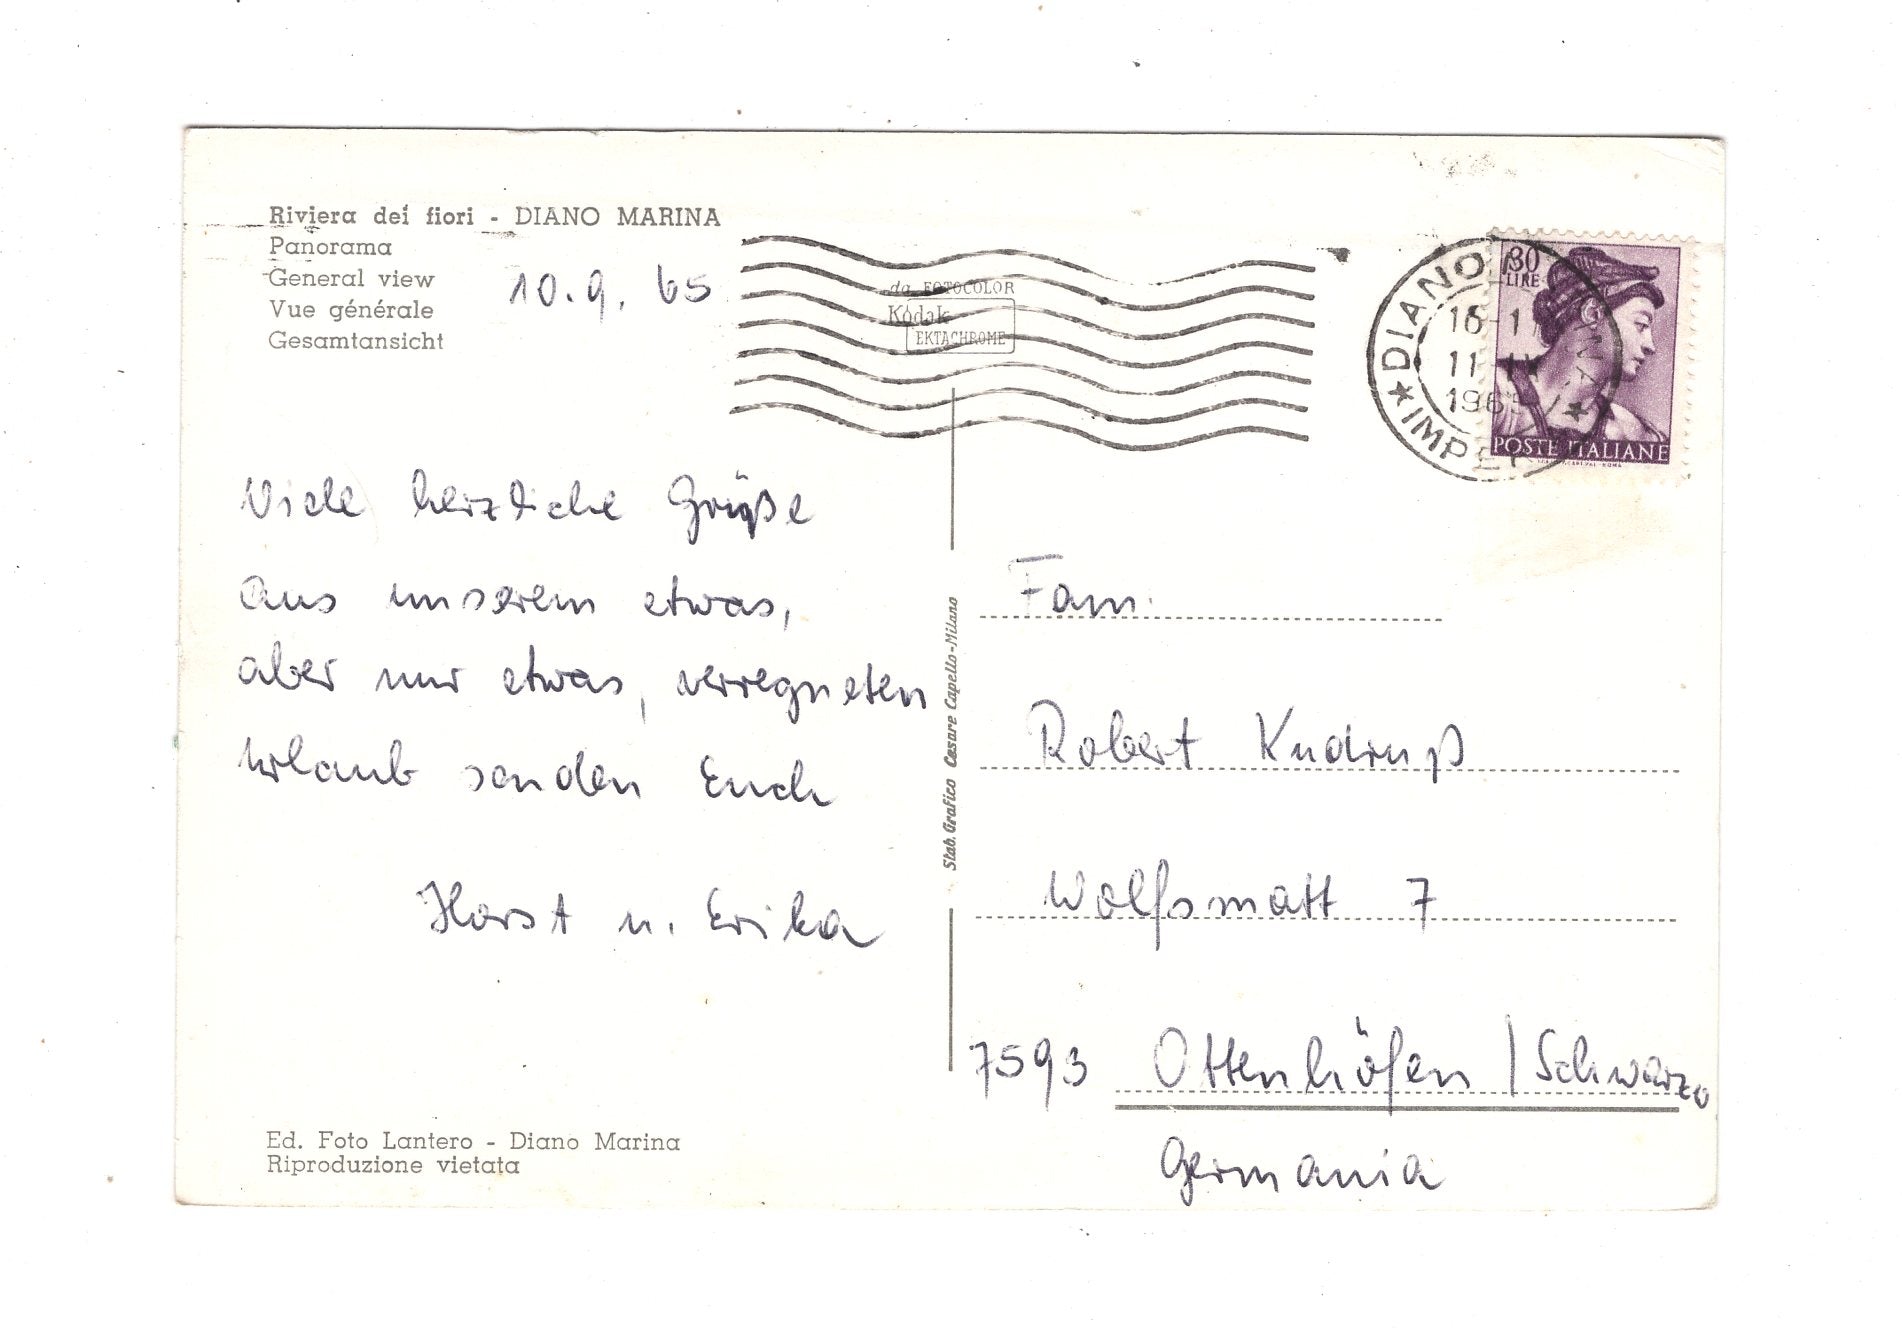 Riviera dei fiori - DIANO MARINA
Panorama
General view
Vue générale
Gesamtansicht
10.9.65
da FOTOCOLOR
Kodak
EKTACHROME
30
LIRE
POSTE ITALIANE
DIANO
16-1
11 IX
1965
Viele herzliche Grüße
aus unserem etwas,
aber nur etwas, verregneten
Urlaub senden Euch
Horst u. Erika
Stab. Grafico Cesare Capello - Milano
Fam.
Robert Kndruß
Wolfsmatt 7
7593 Ottenhöfen / Schwarzw
Germania
Ed. Foto Lantero - Diano Marina
Riproduzione vietata